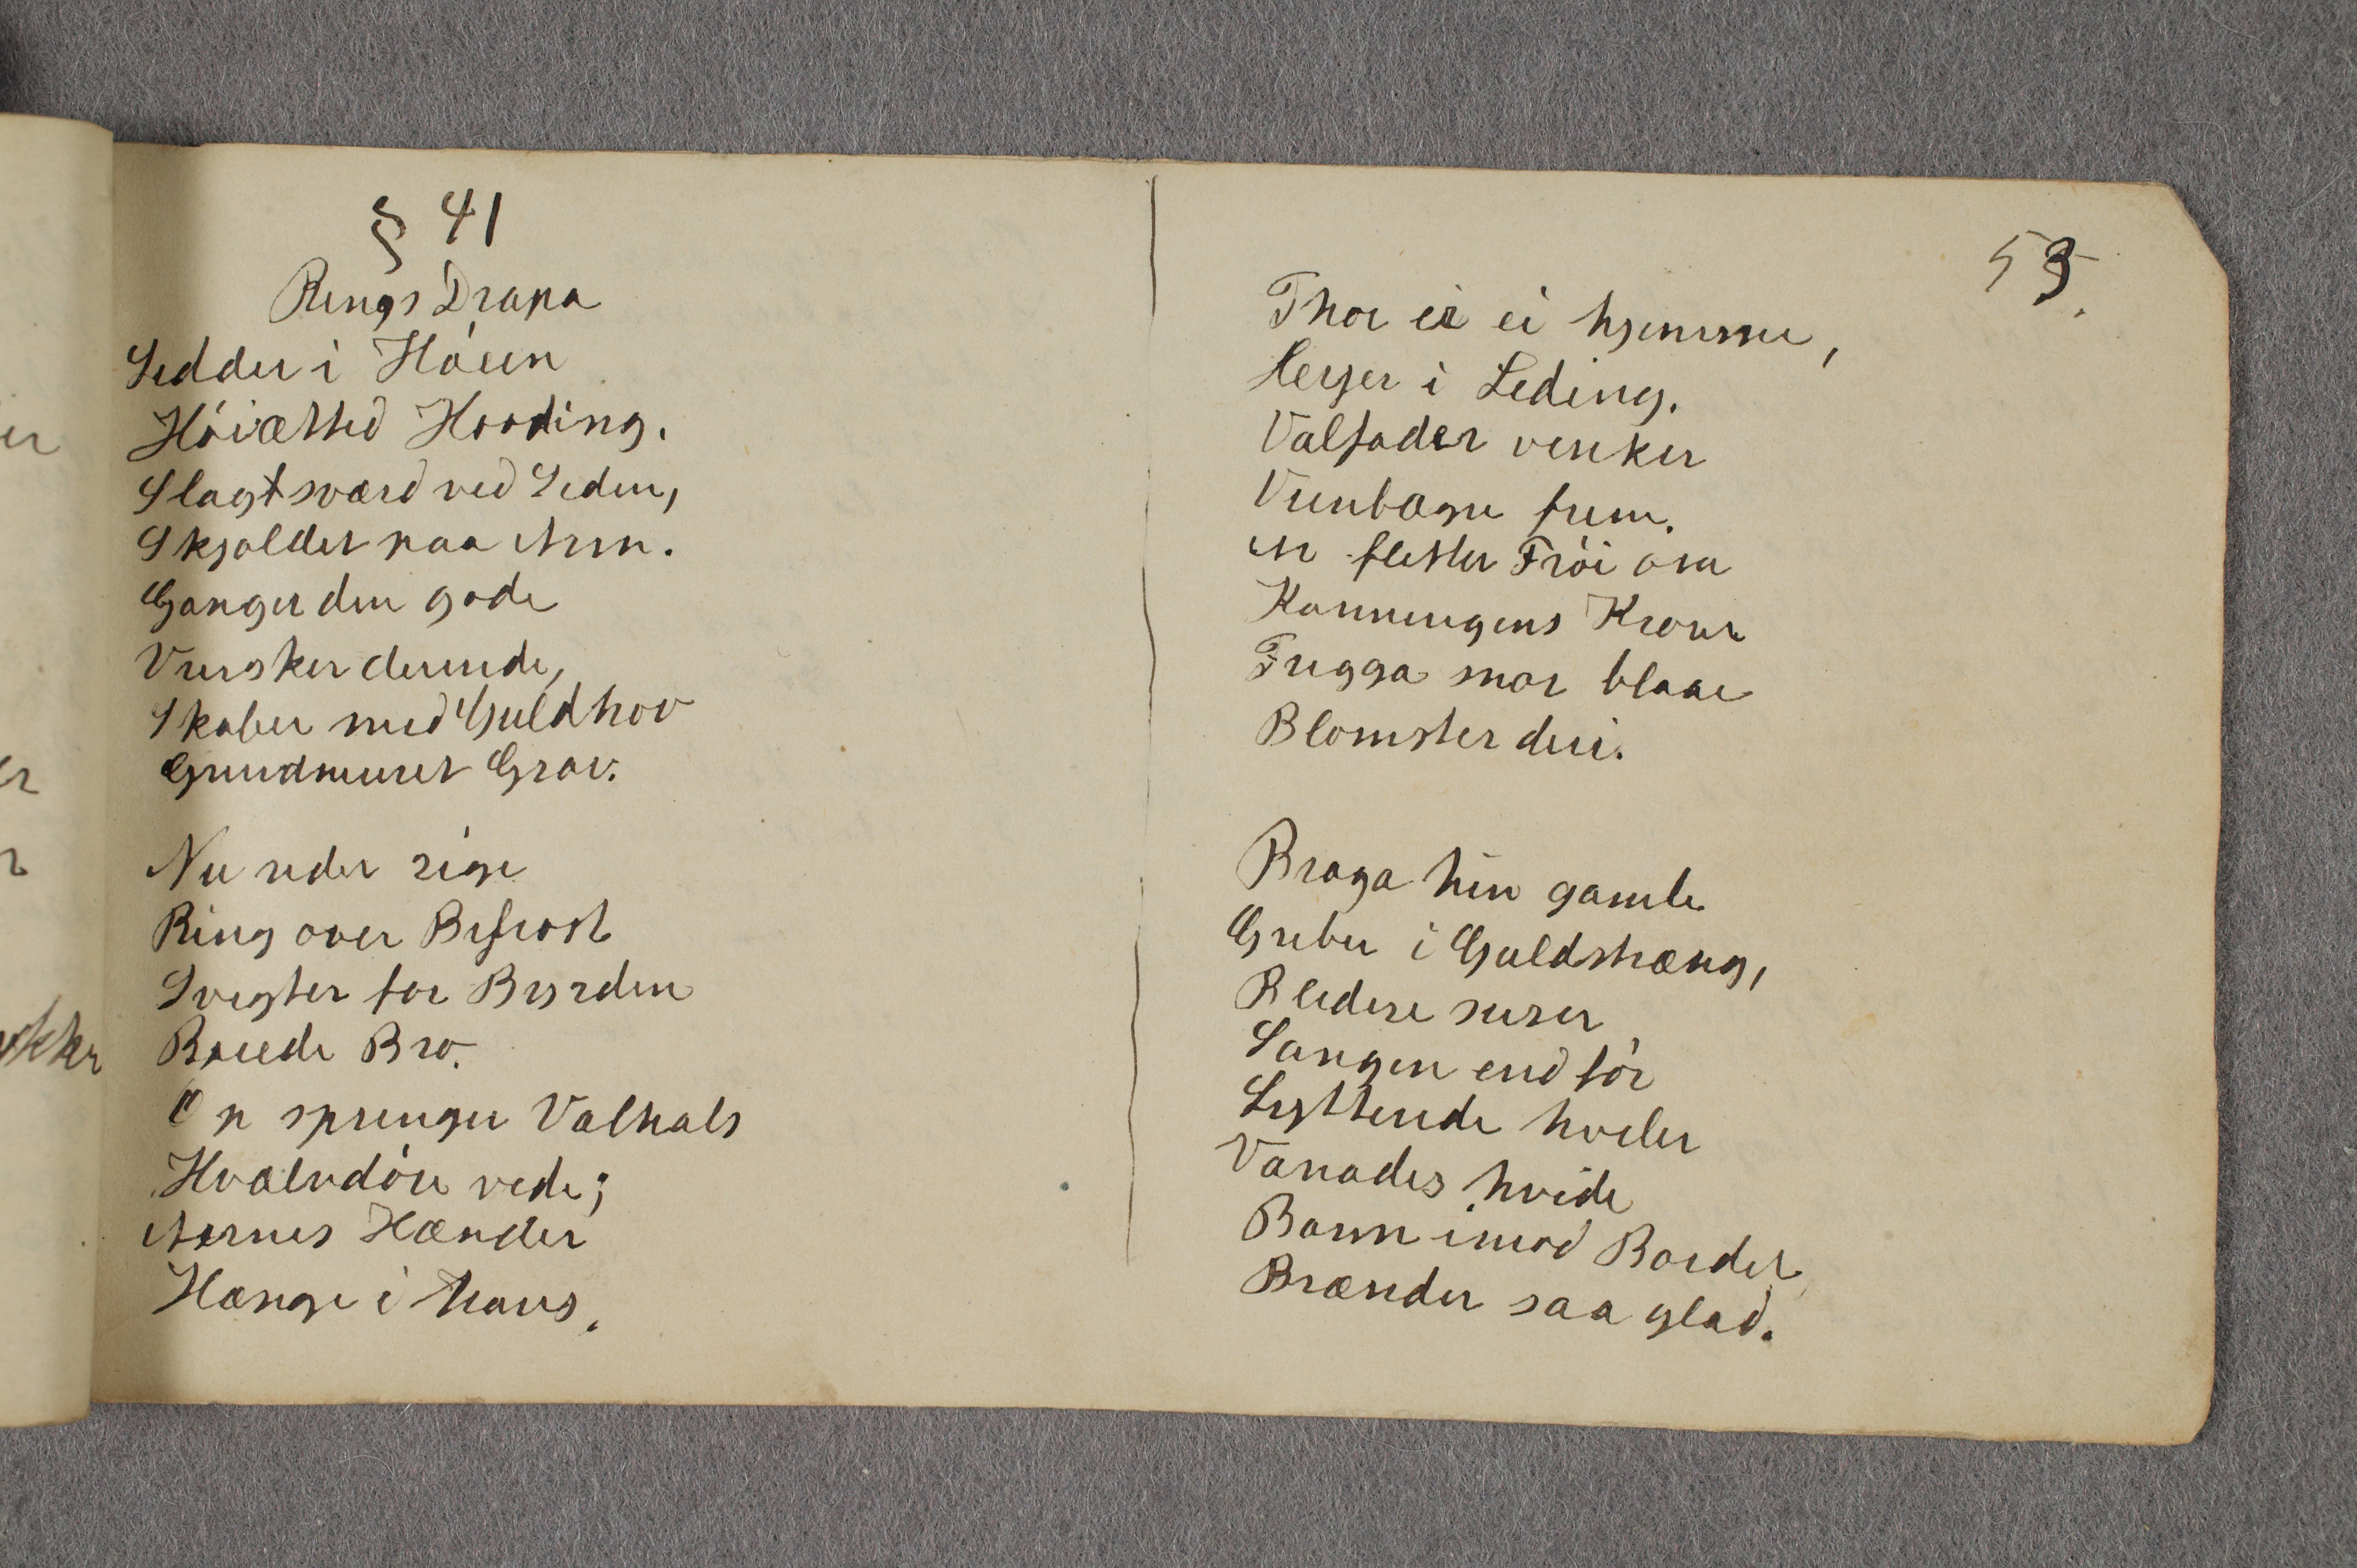 § 41
Rings Drapa
Sidder i Höien
Höiættet Hovding.
Slagtsværd ved Siden,
Skjoldet paa Arm.
Ganger den gode
Vrinsker derinde,
Skaber med Guldhov
Grundmuret Grav.
Nu rider rige
Ring over Bifrost
Svigter for Byrden
Buede Bro.
Op springer Valhals
Hvælvdöre vide;
Asernes Hænder
Hænge i hans.
53.
Thor er ei hjemme,
Herjer i Leding.
Valfader vinker
Viinbægre frem.
Ax fletter Fröi om
Konningens Krone
Frigga snor blaae
Blomster deri.
Braga hin gamle
Griber i Guldstræng,
Blidere suser
Sangen end för
Lyttende hviler
Vanadis hvide
Barm imod Bordet
Brænder saa glad.